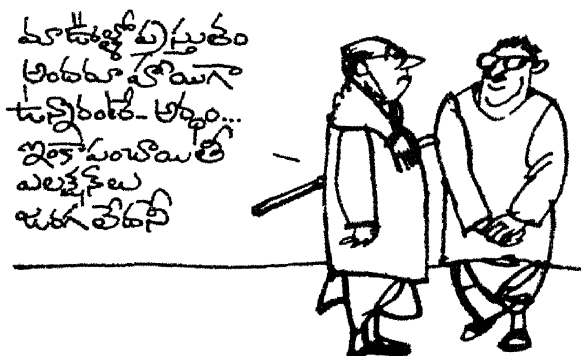 మా ఊళ్ళో ప్రస్తుతం
అందరూ హాయిగా
ఉన్నారంటే- అర్థం...
ఇంకా పంచాయితీ
ఎలక్షన్‌లు
జరగ లేదనీ